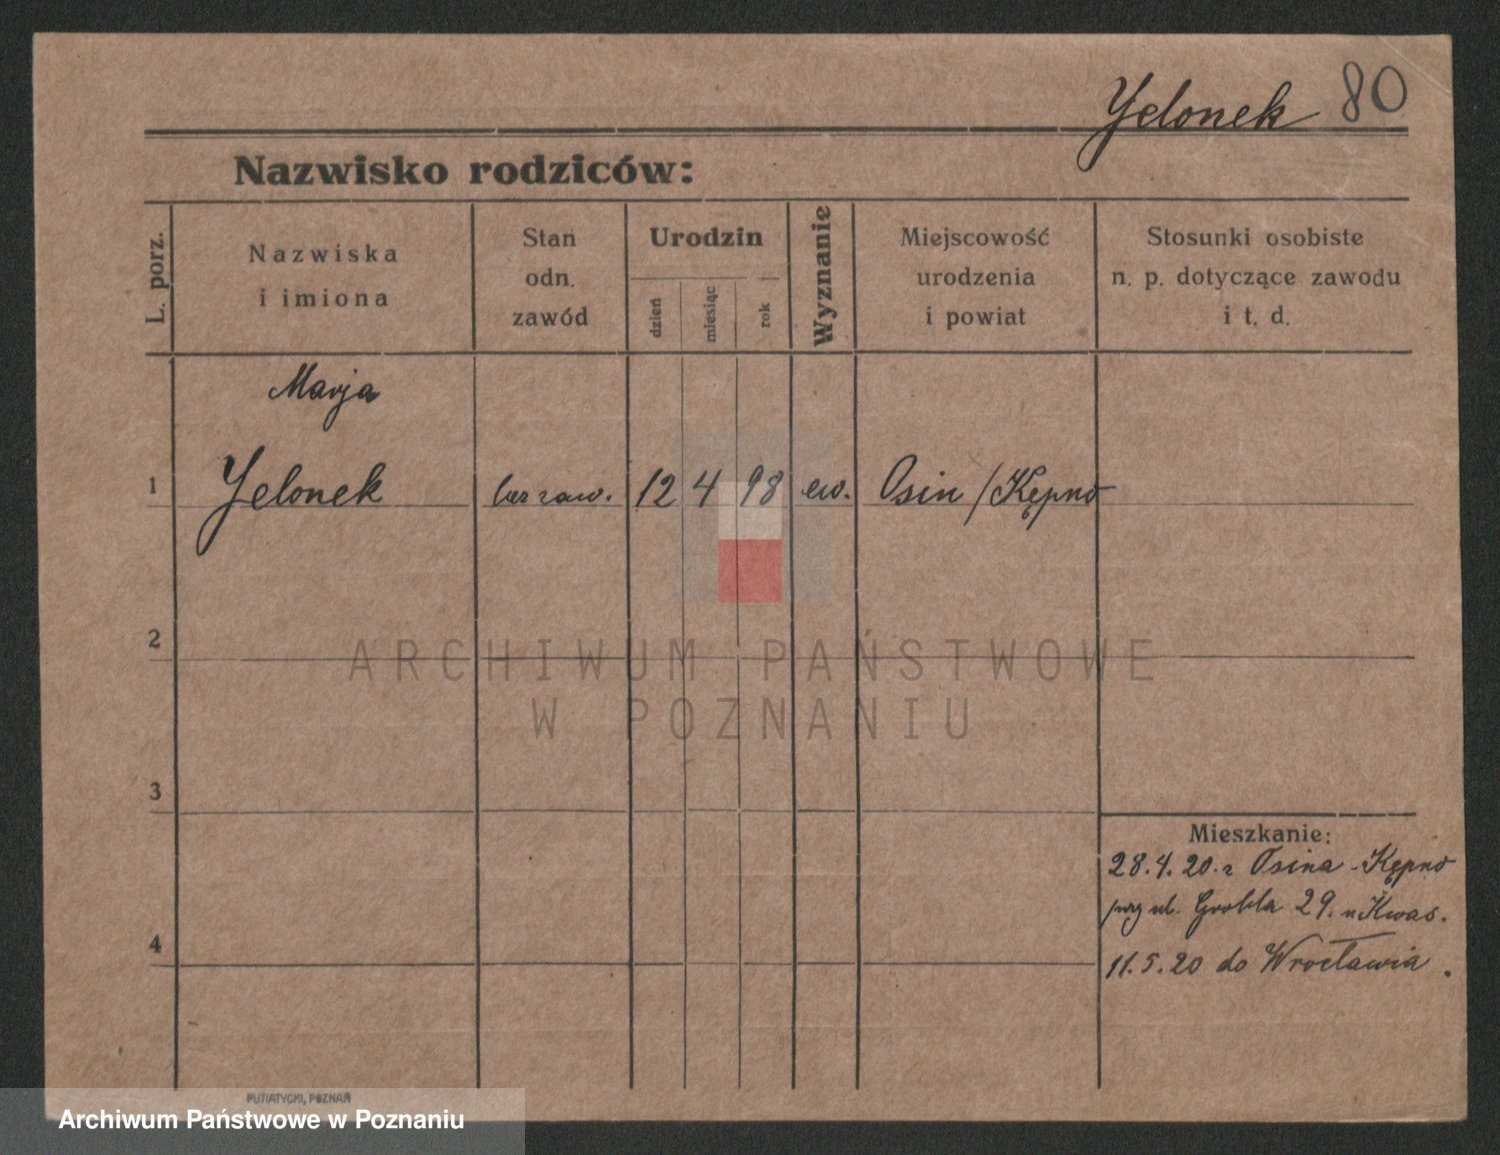 Yelonek 80
Nazwisko rodziców:
L. porz.
Nazwiska
i imiona
Stan
odn.
zawód
Urodzin
dzień
miesiąc
rok
Wyznanie
Miejscowość
urodzenia
i powiat
Stosunki osobiste
n. p. dotyczące zawodu
i t. d.
Marja
1 Yelonek bez zaw. 12 4 98 ew. Osin / Kępno
2
ARCHIWUM PAŃSTWOWE
W POZNANIU
3
Mieszkanie:
28.4.20. z Osina - Kępno
przy ul. Grobla 29. u Kwas.
4
11.5.20 do Wrocławia.
PUTIATYCKI, POZNAŃ
Archiwum Państwowe w Poznaniu